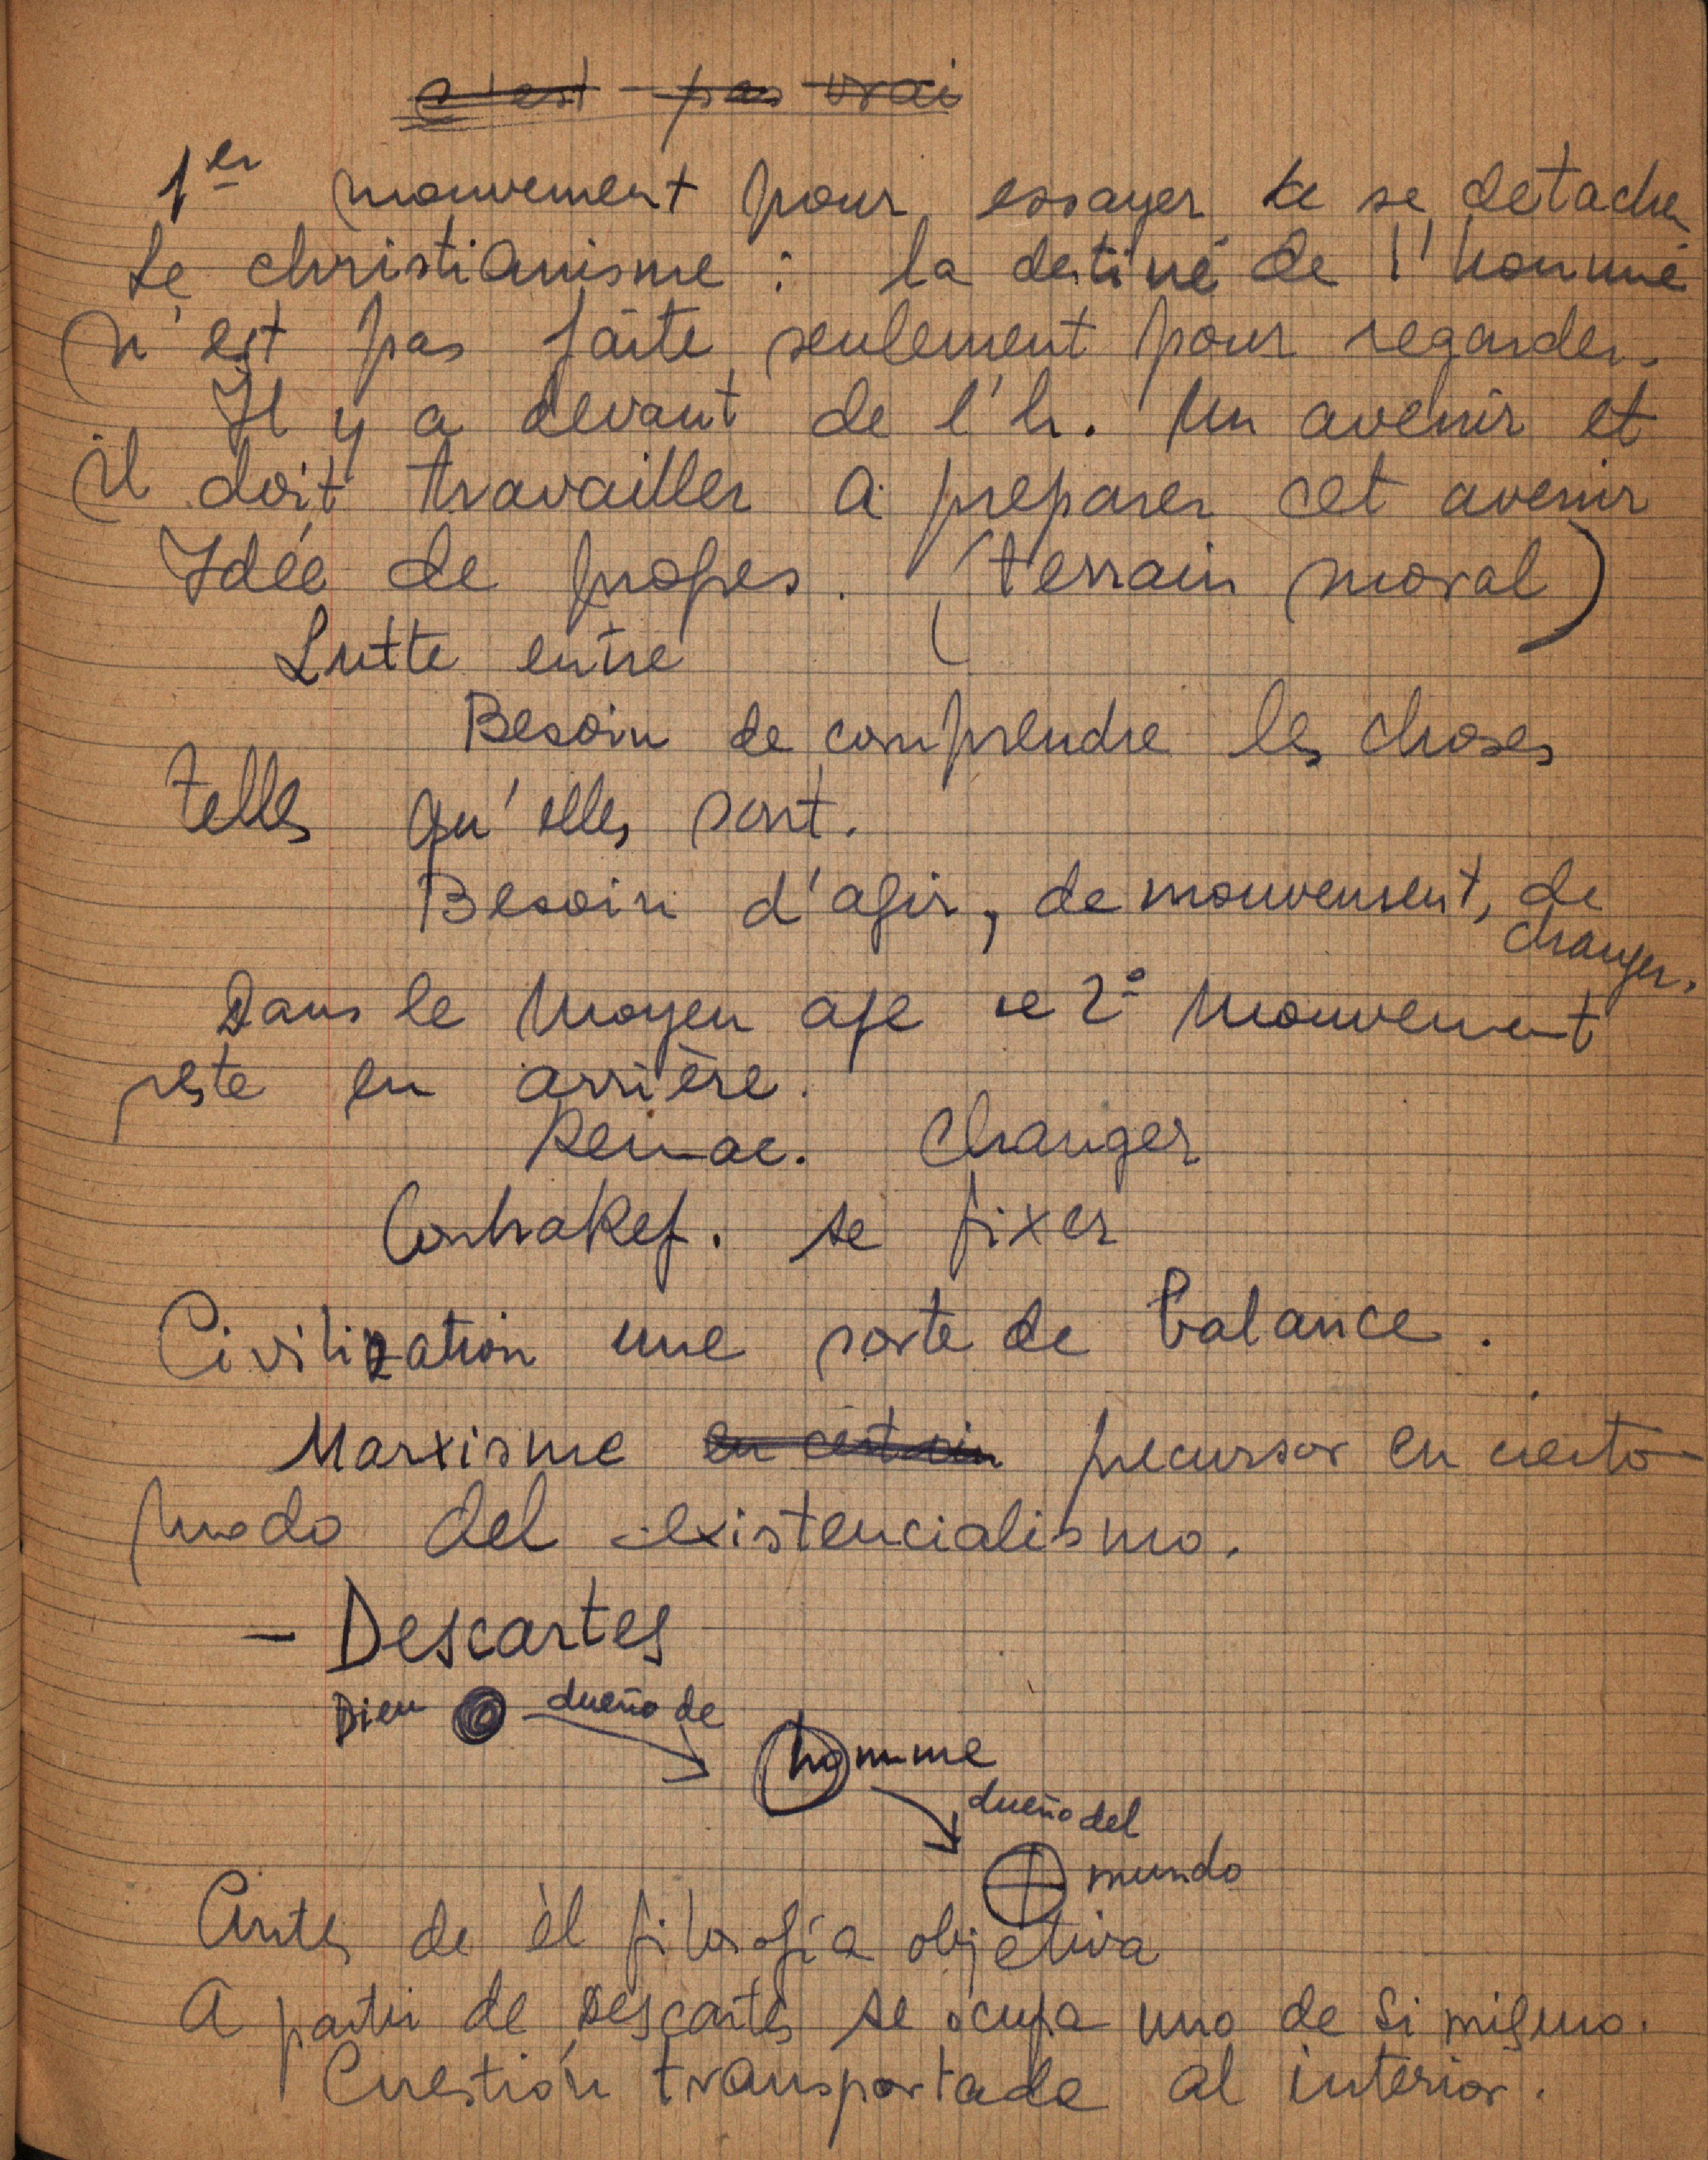 c'est pas vrai
1er mouvement pour essayer de se detacher
de christianisme : la destiné de l'homme
n'est pas faite seulement pour regarder.
Il y a devant de l'h. un avenir et
il doit travailler a preparer cet avenir
Idée de progres. (terrain moral)
Lutte entre
Besoin de comprendre les choses
telles qu'elles sont.
Besoin d'agir, de mouvement, de
changer.
Dans le Moyen age le 2º mouvement
reste en arrière.
Renac. Changer
ContraRef. se fixer
Civilization une sorte de balance.
Marxisme precursor en cierto
modo del existencialismo.
- Descartes
Dieu dueño de
homme
dueño del
mundo
Antes de èl filosofía objetiva
A partir de Descartes se ocupa uno de si mismo.
Cuestión transportada al interior.